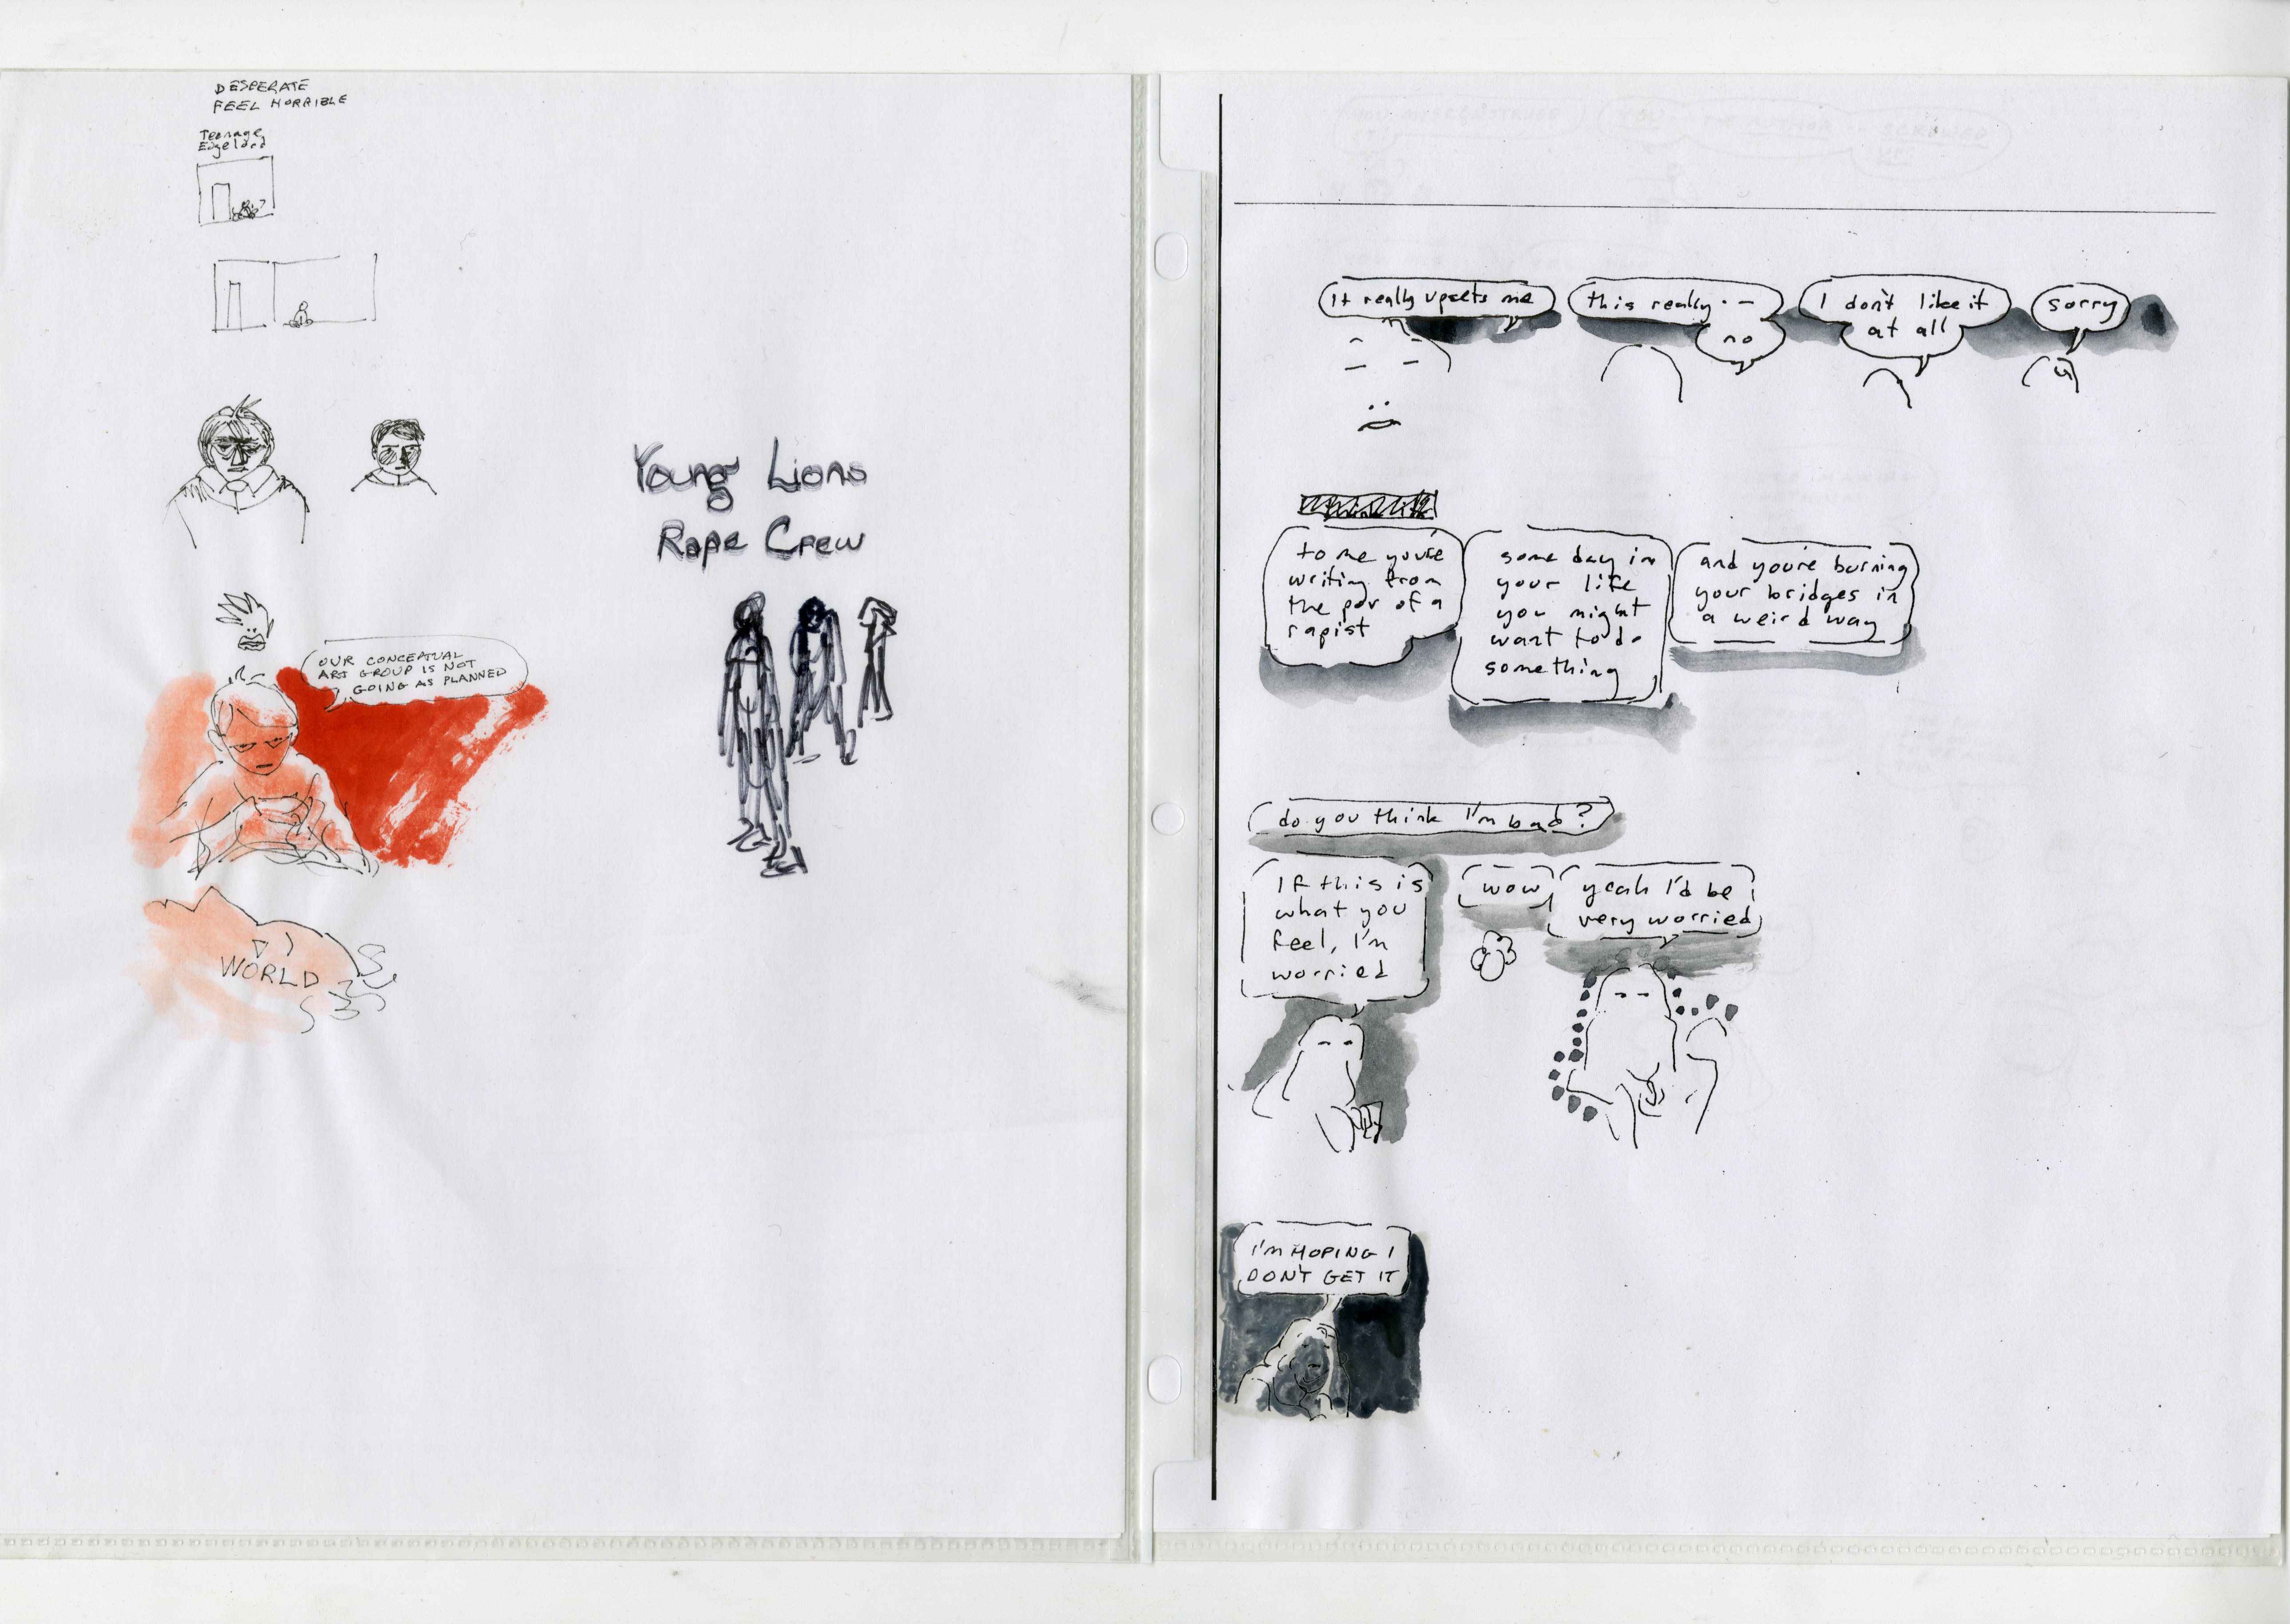 DESPERATE
FEEL HORRIBLE
Teenage
Edgelord
OUR CONCEPTUAL
ART GROUP IS NOT
GOING AS PLANNED
WORLD
Young Lions
Rape Crew
It really upsets me
this really --
no
I don't like it
at all
sorry
to me you're
writing from
the pov of a
rapist
some day in
your life
you might
want to do
something
and you're burning
your bridges in
a weird way
do you think I'm bad?
If this is
what you
feel, I'm
worried
wow
yeah I'd be
very worried
I'M HOPING I
DON'T GET IT